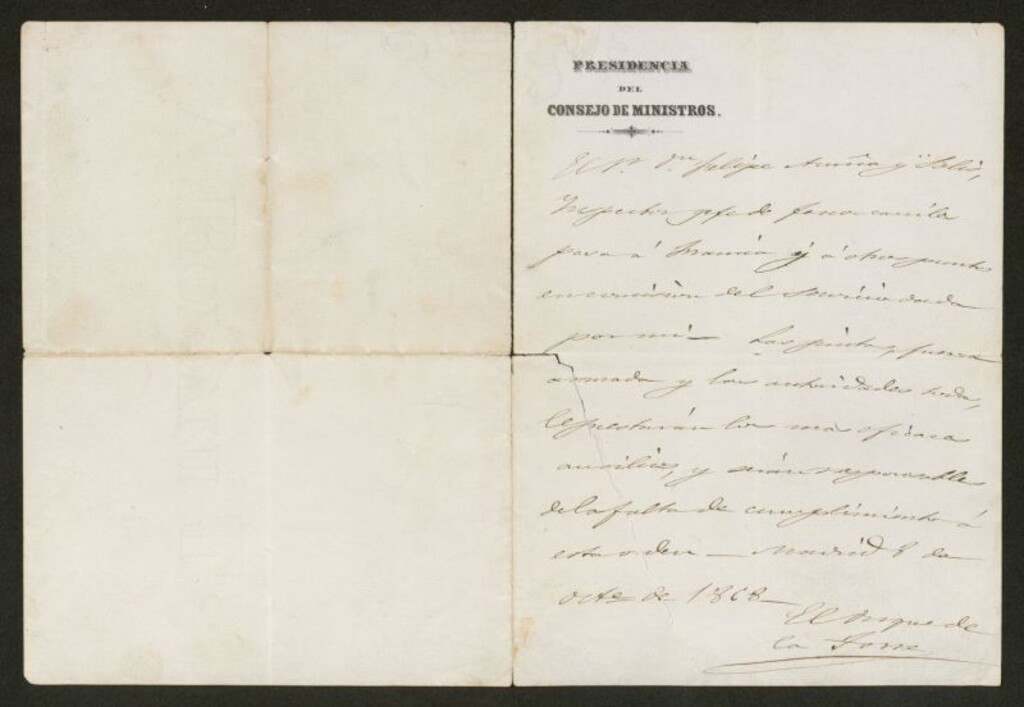 PRESIDENCIA
DEL
CONSEJO DE MINISTROS.
El Sr. Dn. Felipe Acuña y Solis,
Inspector gefe de ferro-carriles
pasa á Francia y á otros puntos
en comision del servicio dada
por mi — Las juntas, fuerza
armada y las autoridades todas,
le prestarán los mas eficaces
auxilios, y serán responsables
de la falta de cumplimiento á
esta orden — Madrid 8 de
Octe. de 1868 —
El Duque de
la Torre